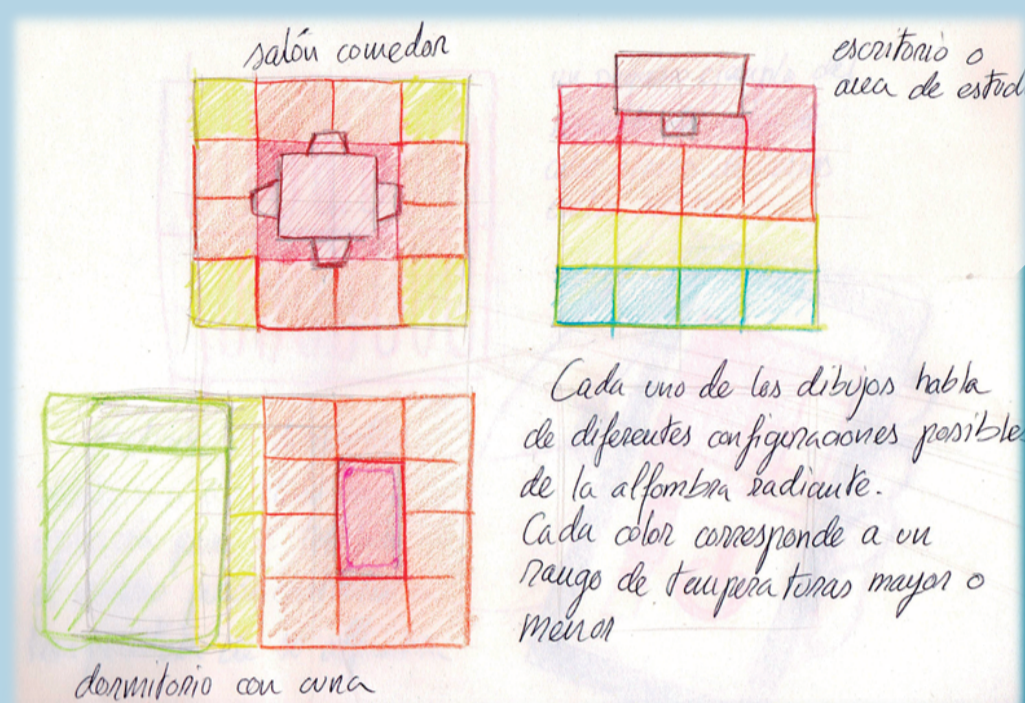 salón comedor
escritorio o
area de estud
Cada uno de los dibujos habla
de diferentes configuraciones posible
de la alfombra radiante.
Cada color corresponde a un
rango de temperaturas mayor o
menor
dormitorio con cuna